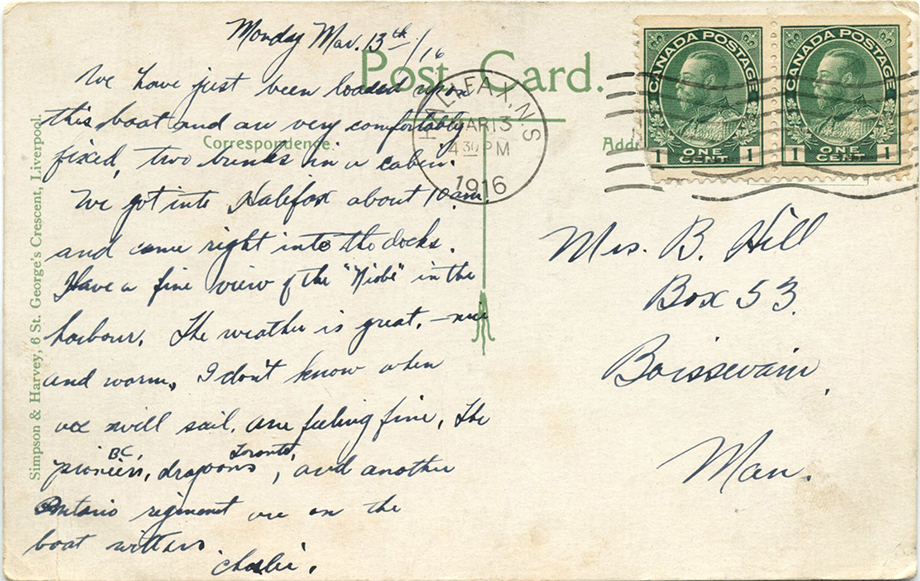 Monday Mar. 13th/16
Post Card.
We have just been loaded upon
this boat and are very comfortably
Correspondence.
fixed, two bunks in a cabin.
We got into Halifax about 10 am.
and came right into the docks.
Have a fine view of the "Niobe" in the
harbour. The weather is great, - nice
and warm. I don't know when
we will sail. are feeling fine. The
BC Toronto
pioneers, dragoons, and another
Ontario regiment are on the
boat with us
Charlie.
Simpson & Harvey, 6 St. George's Crescent, Liverpool.
HALIFAX, N.S
MAR 13
4 30 PM
1916
CANADA POSTAGE
1 ONE CENT 1
CANADA POSTAGE
1 ONE CENT 1
Mrs. B. Hill
Box 53.
Boissevain,
Man.